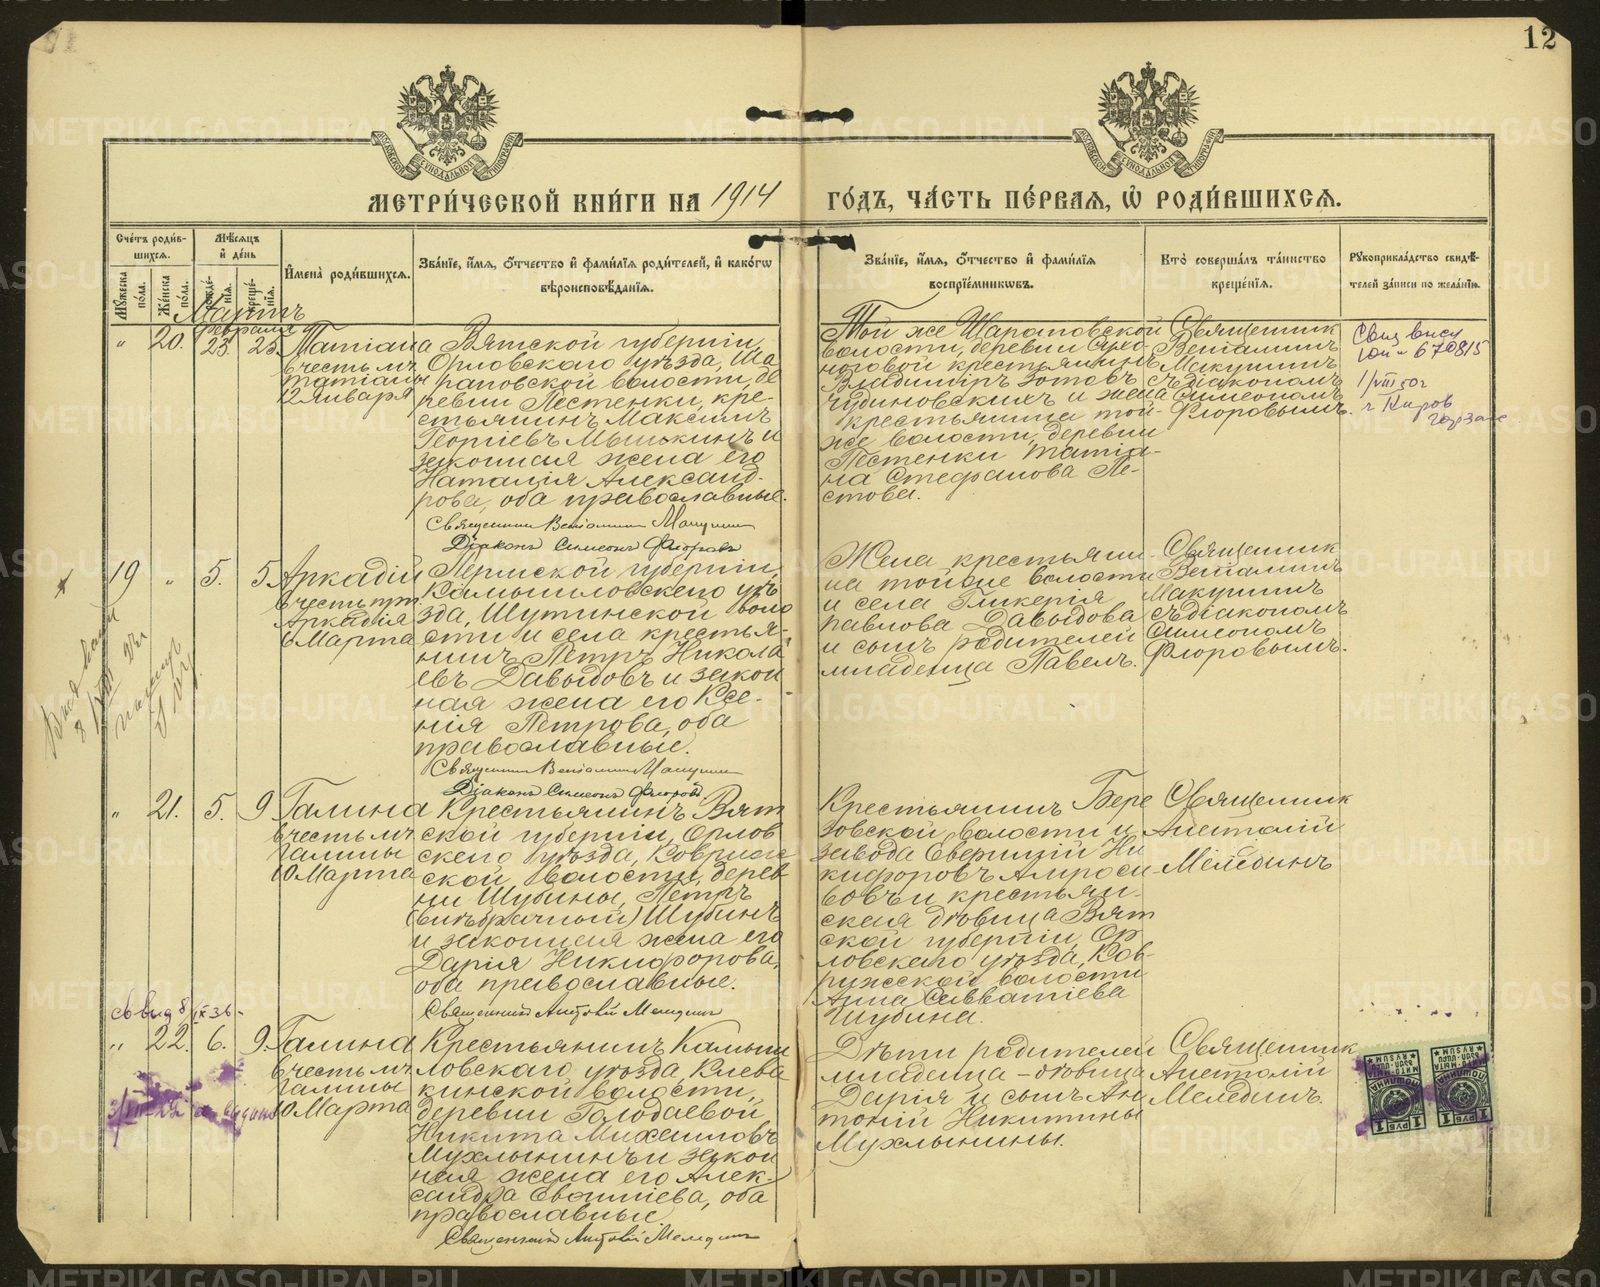 12
МОСКОВСКОЙ СѴНОДАЛЬНОЙ ТИПОГРАФІИ
МОСКОВСКОЙ СѴНОДАЛЬНОЙ ТИПОГРАФІИ
МЕТРИ́ЧЕСКОЙ КНИ́ГИ НА 1914 ГО́ДЪ, ЧА́СТЬ ПЕ́РВАЯ, Ѽ РОДИ́ВШИХСЯ.
Сче́тъ роди́в-
шихся.
Мꙋ́жеска по́ла.
Же́нска по́ла.
Мѣ́сяцъ и҆ де́нь
рожде́-
нїѧ.
креще́-
нїѧ.
И҆мена̀ роди́вшихся.
Зва́нїе, и҆́мѧ, ѻ҆́тчество и҆ фами́лїѧ роди́телей, и҆ како́гѡ
вѣроисповѣ́данїѧ.
Зва́нїе, и҆́мѧ, ѻ҆́тчество и҆ фами́лїѧ
воспрїе́мникѡвъ.
Кто̀ соверша́лъ та́инство
креще́нїѧ.
Рꙋкоприкла́дство свидѣ́-
телей за́писи по жела́нїю.
Мартъ
февраля
" 20. 23. 25.
Татіана
въ честь мч.
Татіаны
12 Января
Вятской губерніи,
Орловскаго уѣзда, Ша
рановской волости, де
ревни Пестенки, кре-
стьянинъ Максимъ
Георгіевъ Мышкинъ и
законная жена его
Наталія Александ-
рова, оба православные.
Священникъ Веніаминъ Макушинъ
Діаконъ Симеонъ Флоровъ
Той же Шарановской
волости, деревни Сухо-
ноговой крестьянинъ
Владиміръ Зотовъ
Чудиновскихъ и жена
крестьянина той-
же волости, деревни
Пестенки Татіа-
на Стефанова Пе-
стова.
Священникъ
Веніаминъ
Макушинъ
съ діакономъ
Симеономъ
Флоровымъ.
670815
1/VIII 50 г
г Киров
19 " 5. 5.
Аркадій
въ честь прп.
Аркадія
6 Марта
Пермской губерніи,
Камышловскаго уѣ
зда, Шутинской воло
сти и села крестья-
нинъ Петръ Никола
евъ Давыдовъ и закон
ная жена его Ксе-
нія Петрова, оба
православные.
Священникъ Веніаминъ Макушинъ
Діаконъ Симеонъ Флоровъ
Жена крестьяни-
на той же волости
и села Гликерія
Павлова Давыдова
и сынъ родителей
младенца Павелъ.
Священникъ
Веніаминъ
Макушинъ
съ діакономъ
Симеономъ
Флоровымъ.
" 21. 5. 9.
Галина
въ честь мч.
Галины
10 Марта
Крестьянинъ Вят
ской губерніи, Орлов
скаго уѣзда, Ковриж
ской волости, дерев
ни Шубины, Петръ
(Внѣбрачный) Шубинъ
и законная жена его
Дарія Никифорова,
оба православные.
Священникъ Анатолій Мелединъ
Крестьянинъ Бере
зовской волости и
завода Евфимій Ни
кифоровъ Амроси-
товъ и крестьян-
ская дѣвица Вят
ской губерніи, Ор
ловскаго уѣзда, Ков-
рижской волости
Анна Савватіева
Шубина.
Священникъ
Анатолій
Мелединъ
" 22. 6. 9.
Галина
въ честь мч.
Галины
10 Марта
Крестьянинъ Камыш
ловскаго уѣзда, Клева
кинской волости,
деревни Голодаевой
Никита Михаиловъ
Мухлынинъ и закон
ная жена его Алек-
сандра Евфиміева, оба
православные.
Священникъ Анатолій Мелединъ
Дѣти родителей
младенца - дѣвица
Дарія и сынъ Ан
тоній Никитины
Мухлынины.
Священникъ
Анатолій
Мелединъ.
1 РУБ 1
1 РУБ 1
METRIKI.GASO-URAL.RU